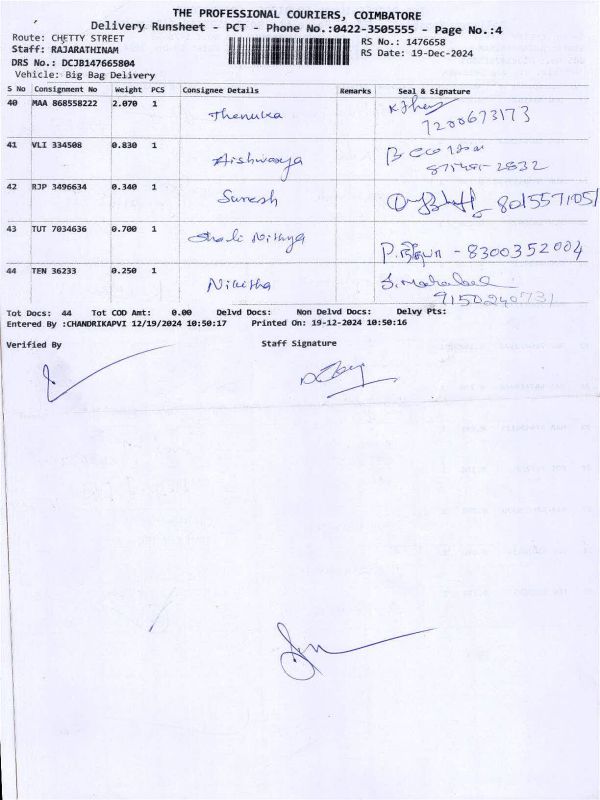 THE PROFESSIONAL COURIERS, COIMBATORE
Delivery Runsheet - PCT - Phone No.:0422-3505555 - Page No.:4
Route: CHETTY STREET
RS No.: 1476658
Staff: RAJARATHINAM
RS Date: 19-Dec-2024
DRS No.: DCJB147665804
Vehicle: Big Bag Delivery
S No Consignment No Weight PCS Consignee Details Remarks Seal & Signature
40 MAA 868558222 2.070 1 Thenuka
7200673173
41 VLI 334508 0.830 1 Aishwarya
42 RJP 3496634 0.340 1 Suresh
43 TUT 7034636 0.700 1 Nithya - 8300352004
44 TEN 36233 0.250 1 Nikitha
9150240731
Tot Docs: 44 Tot COD Amt: 0.00 Delvd Docs: Non Delvd Docs: Delvy Pts:
Entered By :CHANDRIKAPVI 12/19/2024 10:50:17 Printed On: 19-12-2024 10:50:16
Verified By Staff Signature